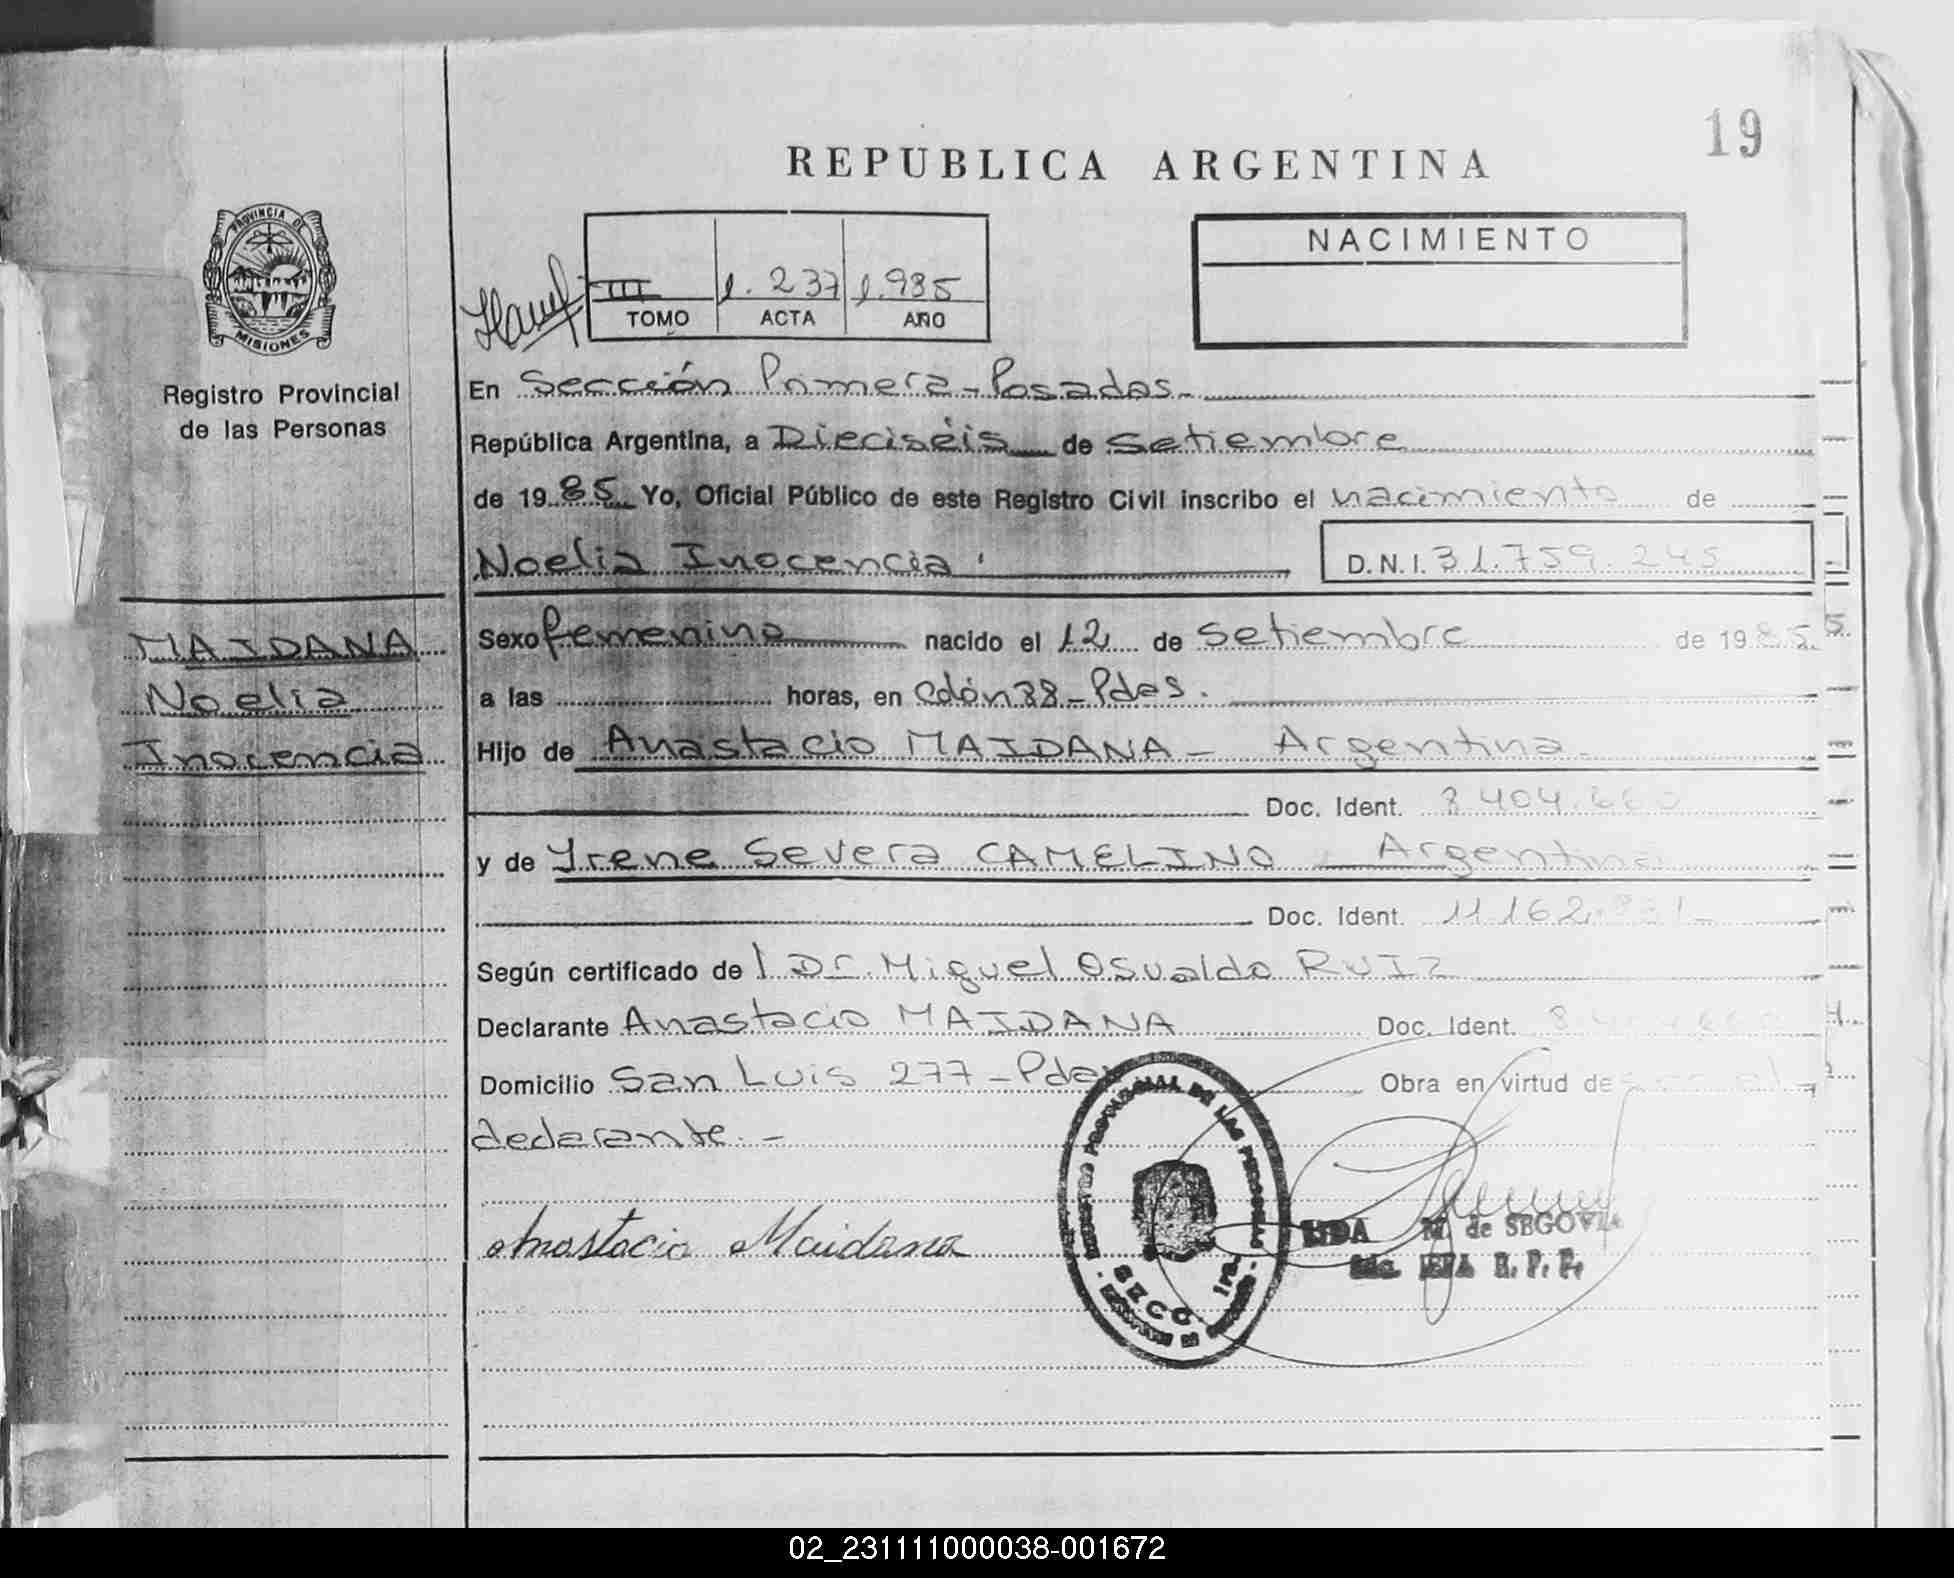 19
REPUBLICA ARGENTINA
PROVINCIA DE
MISIONES
Registro Provincial
de las Personas
III 1.237 1.985
TOMO ACTA AÑO
NACIMIENTO
En Sección Primera - Posadas.
República Argentina, a Dieciséis de Setiembre
de 1985 Yo, Oficial Público de este Registro Civil inscribo el nacimiento de
Noelia Inocencia
D.N.I. 31.759.245
MAIDANA
Noelia
Inocencia
Sexo femenino nacido el 12 de Setiembre de 1985
a las horas, en Pdas.
Hijo de Anastacio MAIDANA - Argentina
Doc. Ident. 8.404.660
y de Yrene Severa CAMELINO Argentina
Doc. Ident. 11.162.
Según certificado de l Dr. Miguel Osvaldo RUIZ
Declarante Anastacio MAIDANA Doc. Ident.
Domicilio San Luis 277 - Pdas Obra en virtud de
declarante. -
Anastacio Maidana
REGISTRO PROVINCIAL DE LAS PERSONAS
SECC 1ra.
LIDA M. de SEGOVIA
R. P. P.
02_231111000038-001672